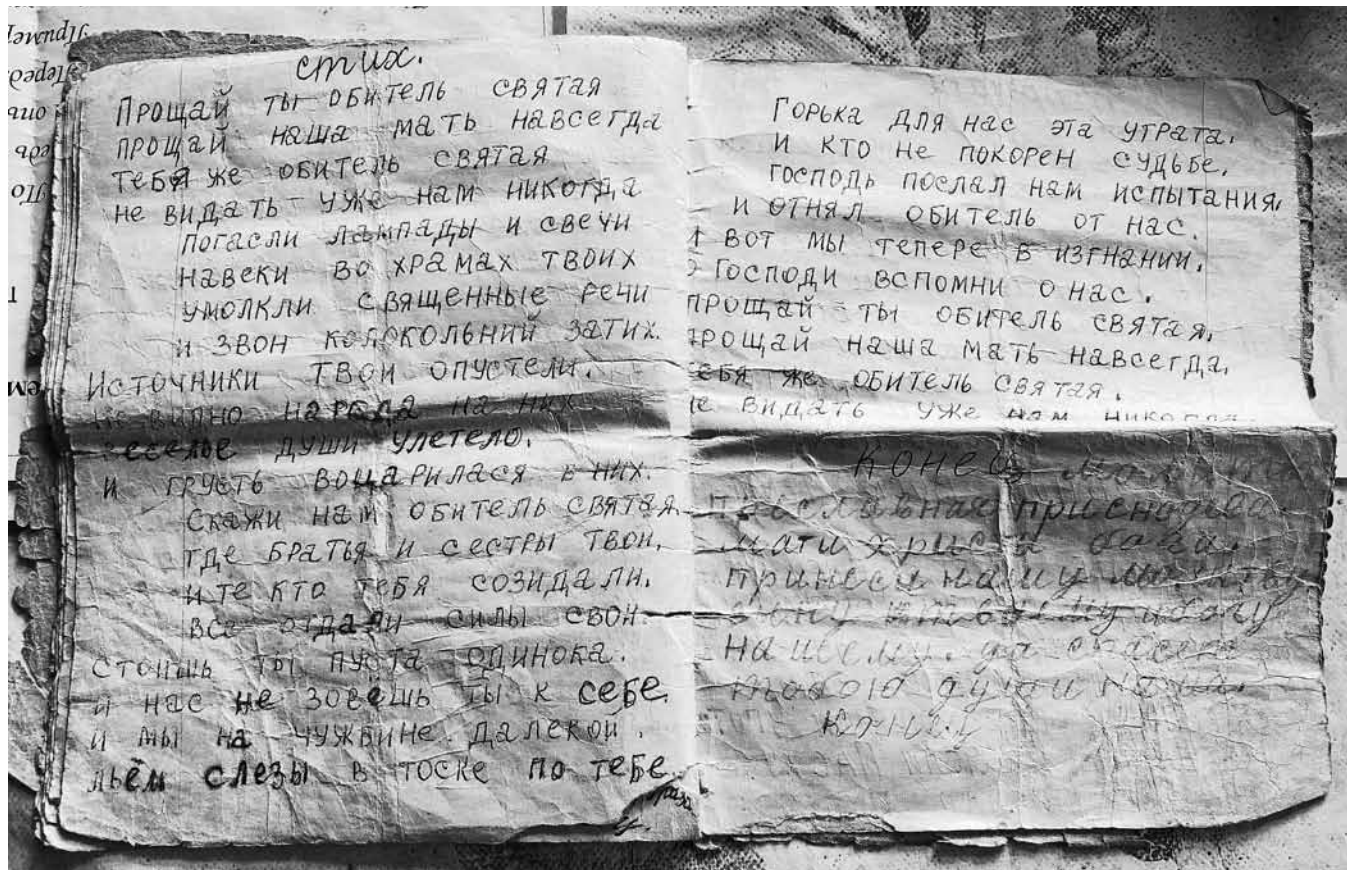 стих.
Прощай ты обитель святая
прощай наша мать навсегда
тебя же обитель святая
не видать уже нам никогда
погасли лампады и свечи
навеки во храмах твоих
умолкли священные речи
и звон колокольний затих.
Источники твои опустели.
не видно народа на них
веселье души улетело.
и грусть воцарилася в них.
Скажи нам обитель святая
где братья и сестры твои,
и те кто тебя созидали.
все отдали силы свои.
стоишь ты пуста одинока.
и нас не зовёшь ты к себе.
и мы на чужбине далекои.
льём слезы в тоске по тебе.
Горька для нас эта утрата.
и кто не покорен судьбе.
господь послал нам испытания.
и отнял обитель от нас.
и вот мы тепере в изгнании.
о господи вспомни о нас.
прощай ты обитель святая.
прощай наша мать навсегда.
тебя же обитель святая.
не видать уже нам никогда
конец
мати христа бога.
принеси нашу молитву
сыну твоему и богу
нашему. да спасет
тобою души наша.
конец